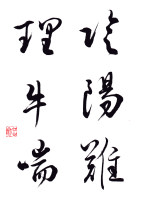 陰陽難
理牛喘